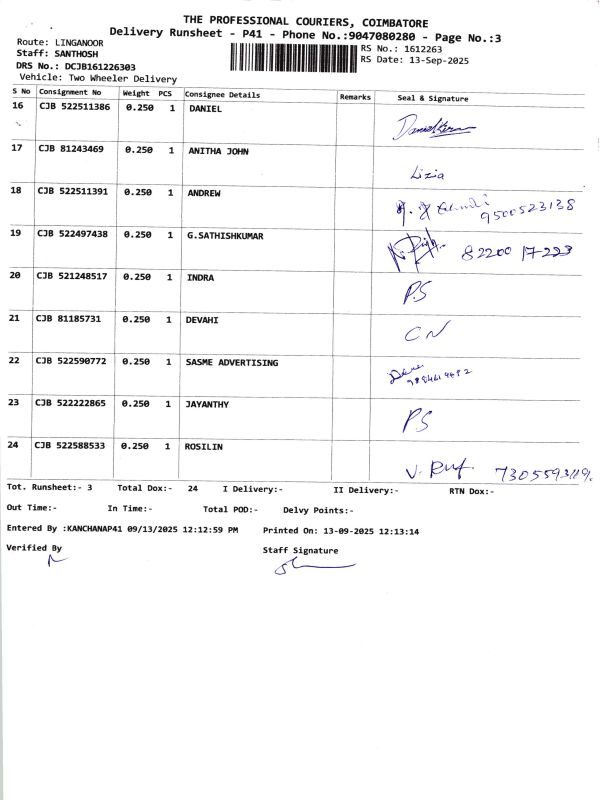 THE PROFESSIONAL COURIERS, COIMBATORE
Delivery Runsheet - P41 - Phone No.:9047080280 - Page No.:3
Route: LINGANOOR
Staff: SANTHOSH
DRS No.: DCJB161226303
Vehicle: Two Wheeler Delivery
RS No.: 1612263
RS Date: 13-Sep-2025
S No Consignment No Weight PCS Consignee Details Remarks Seal & Signature
16 CJB 522511386 0.250 1 DANIEL
17 CJB 81243469 0.250 1 ANITHA JOHN Lizia
18 CJB 522511391 0.250 1 ANDREW 9500523138
19 CJB 522497438 0.250 1 G.SATHISHKUMAR 82200 17-223
20 CJB 521248517 0.250 1 INDRA P.S
21 CJB 81185731 0.250 1 DEVAHI CN
22 CJB 522590772 0.250 1 SASME ADVERTISING
23 CJB 522222865 0.250 1 JAYANTHY PS
24 CJB 522588533 0.250 1 ROSILIN
Tot. Runsheet:- 3 Total Dox:- 24 I Delivery:- II Delivery:- RTN Dox:-
Out Time:- In Time:- Total POD:- Delvy Points:-
Entered By :KANCHANAP41 09/13/2025 12:12:59 PM Printed On: 13-09-2025 12:13:14
Verified By Staff Signature